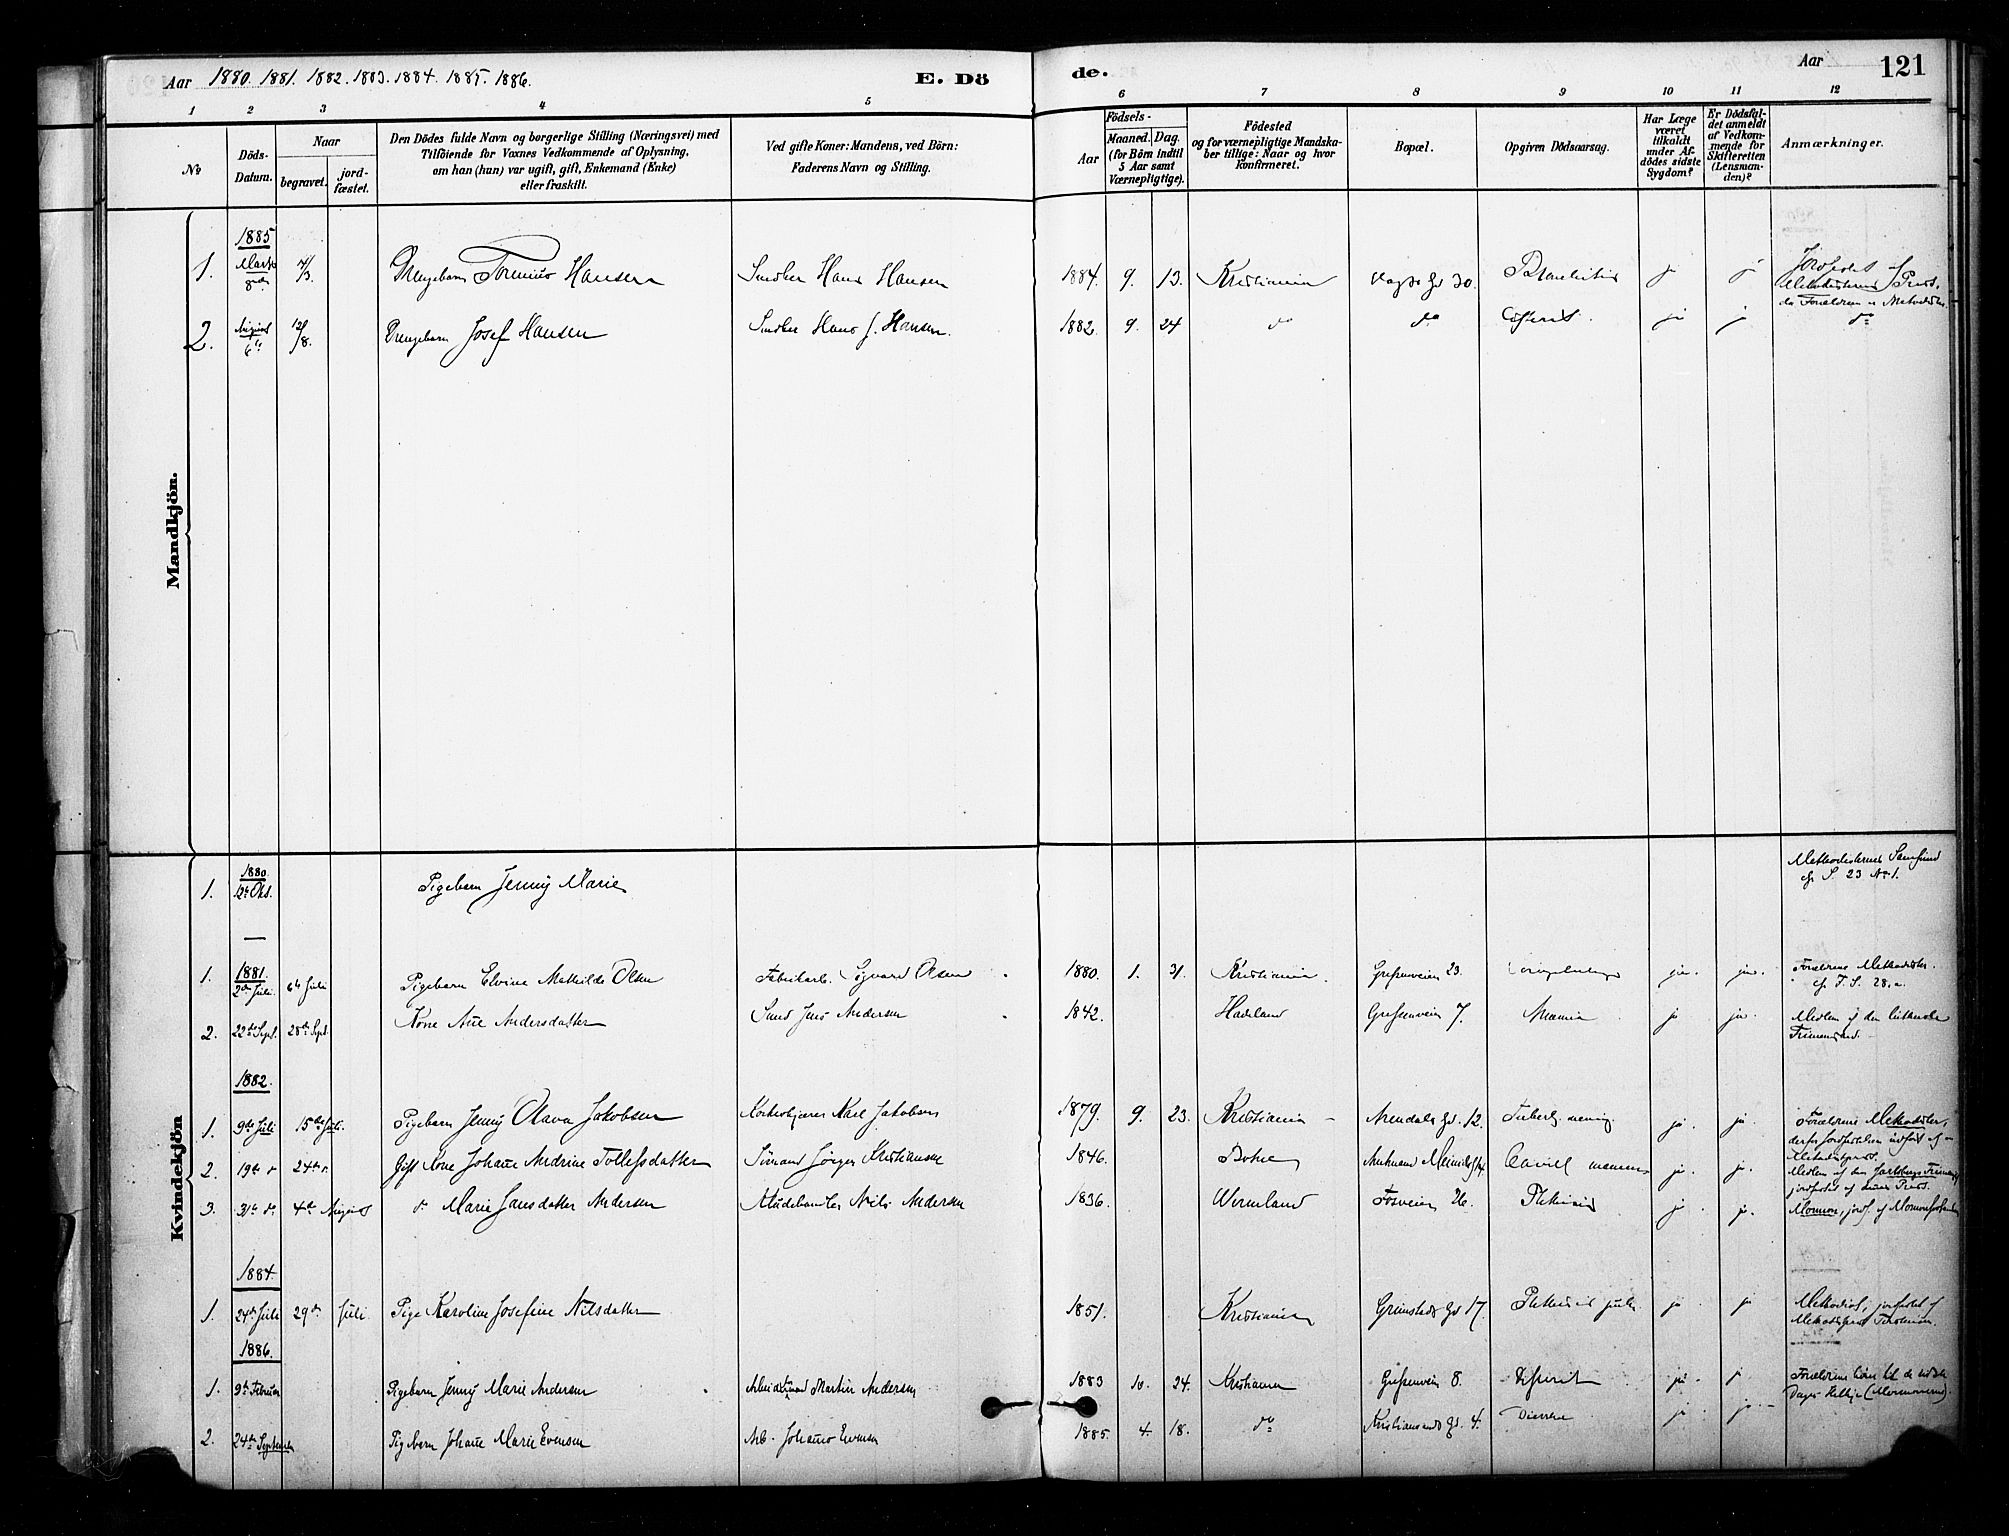 Aar 1880. 1881. 1882. 1883. 1884. 1885. 1886.
E. Dö
de.
Aar
121
1 2 3 4 5 6 7 8 9 10 11 12
No
Döds-Datum.
Naar
begravet.
jord-fæstet.
Den Dödes fulde Navn og borgerlige Stilling (Næringsvei) med
Tilföiende for Voxnes Vedkommende af Oplysning,
om han (hun) var ugift, gift, Enkemand (Enke)
eller fraskilt.
Ved gifte Koner: Mandens, ved Börn:
Faderens Navn og Stilling.
Födsels-
Aar
Maaned. Dag.
(for Börn indtil
5 Aar samt
Værnepligtige).
Födested
og for værnepligtige Mandska-
ber tillige: Naar og hvor
konfirmeret.
Bopæl.
Opgiven Dödsaarsag.
Har Læge
været
tilkaldt
under Af-
dödes sidste
Sygdom?
Er Dödsfal-
det anmeldt
af Vedkom-
mende for
Skifteretten
(Lensman-
den)?
Anmærkninger.
Mandkjön.
1885
1. Marts Drengebarn Hansen Smeker Hans Hansen 1884. 9. 13. Kristiania 30.
2. August 6te 12/8. Drengebarn Josef Hansen Hans J. Hansen. 1882. 9. 24 do do ja do
Kvindekjön
1880
1. 12te Okt. Pigebarn Jenny Marie Methodisternes Samfund
cfr S. 23 No 1.
1881.
1. 2den Juli 6te Juli Pigebarn Elvine Mathilde Olsen Fabrikarb. Sigvard Olsen 1880. 1. 31. Kristiania. Grefsenveien 23. ja. ja. Forældrene Methodister.
2. 22de Sept. 28de Sept. Kone Ane Andersdatter Smed Jens Andersen 1842. Hadeland Grefsenveien 7. ja ja. Medlem af den lutherske
Frimenighed.
1882.
1. 9de Juli 15de Juli. Pigebarn Jenny Olava Jakobsen Karl Jakobsen 1879. 9. 23. Kristiania Arendals gd. 12. Tuberk. mening. ja. ja. Forældrene Methodister,
2. 19de do 24de do. Gift Kone Johanne Andrine Tollefsdatter Sömand Jörgen Kristiansen 1846. ja. ja. Medlem af den
jordfæstet af denne Præst.
3. 31te do 4de August do Marie Jansdatter Andersen Nils Andersen 1836. Wermland Fosveien 26. ja. Mormon,
1884.
1. 24de Juli 29de Juli. Pige Karoline Josefine Nilsdatter 1851. Kristiania Grimstads gd 17. ja ja Methodist, jordfæstet af
1886.
1. 9de Februar Pigebarn Jenny Marie Andersen Martin Andersen 1883 10. 24. Kristiania Grefsenveien 8. ja. Forældrene hörer til de sidste
Dages Hellige (Mormonerne)
2. 24de September Pigebarn Johanne Marie Evensen Arb. Johannes Evensen 1885. 4. 18. do Kristiansands gd. 4. Diarrhe ja